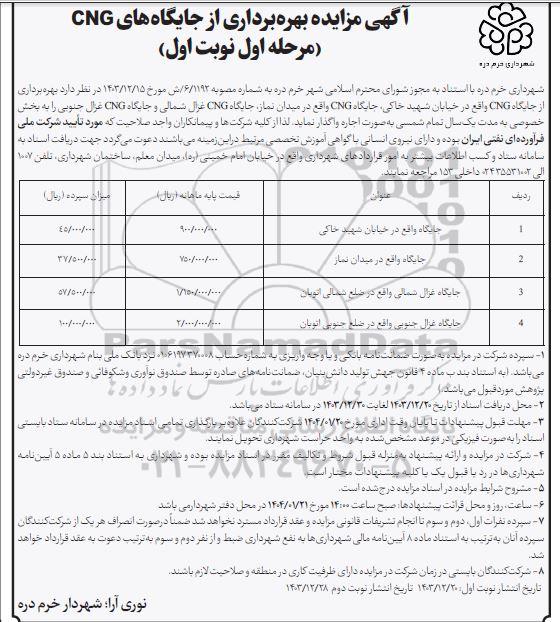 آگهی مزایده بهره‌برداری از جایگاه‌های CNG
(مرحله اول نوبت اول)
شهرداری خرم دره
شهرداری خرم دره با استناد به مجوز شورای محترم اسلامی شهر خرم دره به شماره مصوبه ۶/۱۱۹۲/ش مورخ ۱۴۰۳/۱۲/۱۵ در نظر دارد بهره‌برداری
از جایگاه CNG واقع در خیابان شهید خاکی، جایگاه CNG واقع در میدان نماز، جایگاه CNG غزال شمالی و جایگاه CNG غزال جنوبی را به بخش
خصوصی به مدت یک‌سال تمام شمسی به‌صورت اجاره واگذار نماید. لذا از کلیه شرکت‌ها و پیمانکاران واجد صلاحیت که مورد تأیید شرکت ملی
فرآورده‌ای نفتی ایران بوده و دارای نیروی انسانی با گواهی آموزش تخصصی مرتبط دراین‌زمینه می‌باشند دعوت می‌گردد جهت دریافت اسناد به
سامانه ستاد و کسب اطلاعات بیشتر به امور قراردادهای شهرداری واقع در خیابان امام خمینی (ره)، میدان معلم، ساختمان شهرداری، تلفن ۱۰۰۷
الی ۰۲۴۳۵۵۳۱۰۰۲ داخلی ۱۵۳ مراجعه نمایند.
ردیف عنوان قیمت پایه ماهانه (ریال) میزان سپرده (ریال)
1 جایگاه واقع در خیابان شهید خاکی ۹۰۰/۰۰۰/۰۰۰ ۴۵/۰۰۰/۰۰۰
2 جایگاه واقع در میدان نماز ۷۵۰/۰۰۰/۰۰۰ ۳۷/۵۰۰/۰۰۰
3 جایگاه غزال شمالی واقع در ضلع شمالی اتوبان ۱/۱۵۰/۰۰۰/۰۰۰ ۵۷/۵۰۰/۰۰۰
4 جایگاه غزال جنوبی واقع در ضلع جنوبی اتوبان ۲/۰۰۰/۰۰۰/۰۰۰ ۱۰۰/۰۰۰/۰۰۰
ParsNamadData
۱- سپرده شرکت در مزایده به‌صورت ضمانت‌نامه بانکی و یا وجه واریزی به شماره حساب ۰۱۰۶۱۹۷۳۷۰۰۰۸ نزد بانک ملی بنام شهرداری خرم دره
می‌باشد. (به استناد بند ب ماده ۴ قانون جهش تولید دانش‌بنیان، ضمانت‌نامه‌های صادره توسط صندوق نوآوری وشکوفائی و صندوق غیردولتی
پژوهش موردقبول می‌باشد.)
۲- محل دریافت اسناد از تاریخ ۱۴۰۳/۱۲/۲۰ لغایت ۱۴۰۳/۱۲/۳۰ در سامانه ستاد می‌باشد.
۳- مهلت قبول پیشنهادات تا پایان وقت اداری مورخ ۱۴۰۴/۰۱/۲۰ شرکت‌کنندگان علاوه‌بر بارگذاری تمامی اسناد مزایده در سامانه ستاد بایستی
اسناد را به‌صورت فیزیکی در موعد مشخص شده به واحد حراست شهرداری تحویل نمایند.
۴- شرکت در مزایده و ارائه پیشنهاد به‌منزله قبول شروط و تکالیف مقرر در اسناد مزایده بوده و شهرداری به استناد بند ۵ ماده ۵ آیین‌نامه
شهرداری‌ها در رد یا قبول یک یا کلیه پیشنهادات مختار است.
۵- مشروح شرایط مزایده در اسناد مزایده درج‌شده است.
۶- ساعت، روز و محل قرائت پیشنهادها: صبح ساعت ۱۴:۰۰ مورخ ۱۴۰۴/۰۱/۲۱ در محل دفتر شهردار می باشد
۷- سپرده نفرات اول، دوم و سوم تا انجام تشریفات قانونی مزایده و عقد قرارداد مسترد نخواهد شد ضمناً درصورت انصراف هر یک از شرکت‌کنندگان
سپرده آنان به‌ترتیب به استناد ماده ۸ آیین‌نامه مالی شهرداری‌ها به نفع شهرداری ضبط و از نفر دوم و سوم به‌ترتیب دعوت به عقد قرارداد خواهد
شد.
۸- شرکت‌کنندگان بایستی در زمان شرکت در مزایده دارای ظرفیت کاری در منطقه و صلاحیت لازم باشند.
تاریخ انتشار نوبت اول: ۱۴۰۳/۱۲/۲۰ تاریخ انتشار نوبت دوم ۱۴۰۳/۱۲/۲۸
نوری آرا: شهردار خرم دره
۰۲۱-۸۸۳۴۹۶۷۰-۵